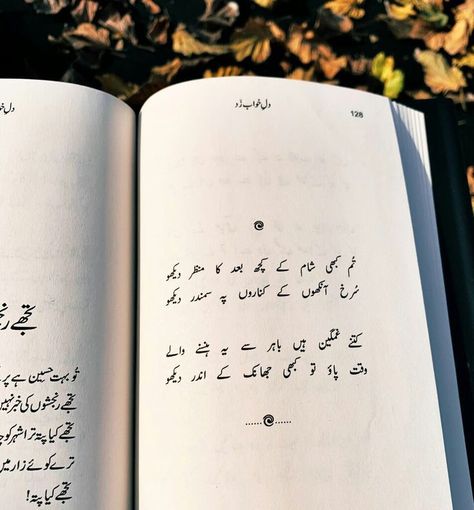 دلِ خواب زَد
128
تُم کبھی شام کے کچھ بعد کا منظر دیکھو
سُرخ آنکھوں کے کناروں پہ سمندر دیکھو
کتنے غمگین ہیں باہر سے یہ ہنسنے والے
وقت پاؤ تو کبھی جھانک کے اندر دیکھو
تجھے
تُو بہت حسین ہے پر
تجھے رنجشوں کی خبر نہیں
تجھے کیا پتہ ترا شہر کو
ترے کوئے زار میں
تجھے کیا پتہ!